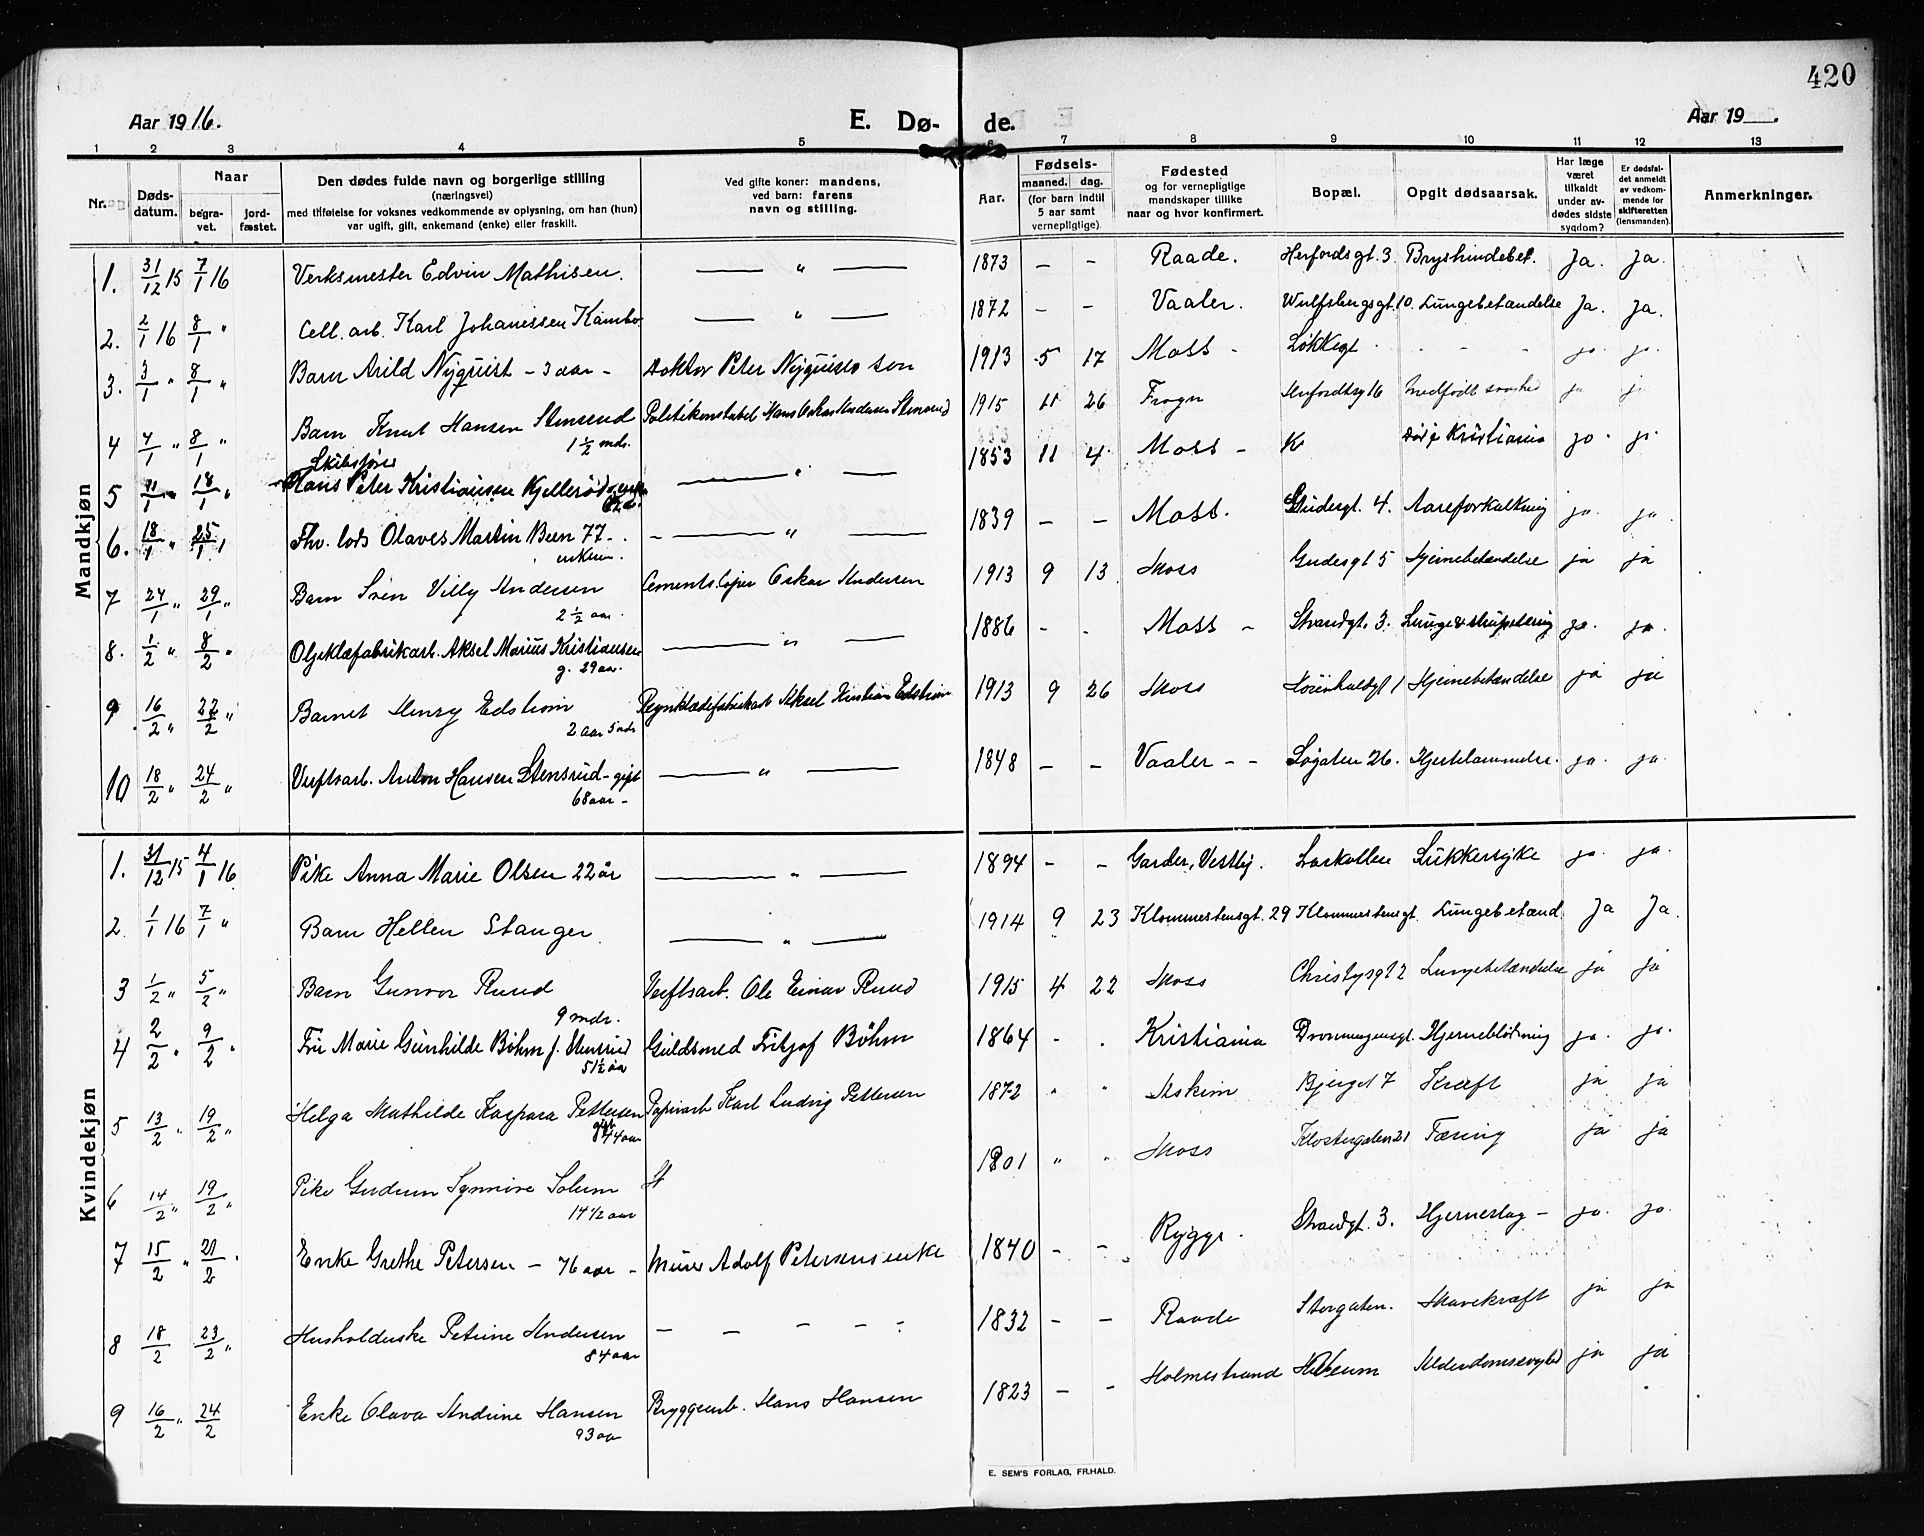 420
Aar 1916. E. Dø- de. Aar 19
1 2 3 4 5 6 7 8 9 10 11 12 13
Nr. Døds-datum. Naar begra-vet. jord-fæstet. Den dødes fulde navn og borgerlige stilling (næringsvei) med tilføielse for voksnes vedkommende av oplysning, om han (hun) var ugift, gift, enkemand (enke) eller fraskilt. Ved gifte koner: mandens, ved barn: farens navn og stilling. Aar. Fødsels- maaned. dag. (for barn indtil 5 aar samt vernepligtige) Fødested og for vernepligtige mandskaper tillike naar og hvor konfirmert. Bopæl. Opgit dødsaarsak. Har læge været tilkaldt under av-dødes sidste sygdom? Er dødsfal-det anmeldt av vedkom-mende for skifteretten (lensmanden). Anmerkninger.
Mandkjøn
1. 31/12 15 7/1 16 Verksmester Edvin Mathisen. — " — 1873 – – Raade. Herfordsgt. 3. Brysthindebet. Ja. Ja.
2. 2/1 16 8/1 " Cell. arb. Karl Johanessen Kambo — " — 1872 – – Vaaler. Wulfsbergsgt. 10. Lungebetændelse Ja. Ja.
3. 3/1 " 8/1 " Barn Arild Nyquist – 3 aar – Doktor Peter Nyquists søn 1913 5 17 Moss – Løkkegt. – – – ja. ja.
4 4/1 " 8/1 " Barn Knut Hansen Stensrud 1½ mdr. Politikonstabel Hans Oskar Andersen Stensrud 1915 11 26 Frogn Herfordsg 16 Medfødt svaghed ja ja
5 11/1 " 18/1 " Skibsfører Hans Peter Kristiansen Kjellerød – " — 1853 11 4. Moss – K Død i Kristiania ja. ja.
6. 18/1 " 25/1 " Fhv. lods Olaves Martin Been 77 – enkem. — " — 1839 – – Moss. Gudesgt. 4. Aareforkalkning ja. ja.
7 24/1 " 29/1 " Barn Svén Villy Andersen 2½ aar. Cementstøper Oskar Andersen 1913 9 13 Moss Gudesgt 5 Hjernebetændelse ja ja
8. 1/2 " 8/2 " Oljeklæfabrikarb. Aksel Marius Kristiansen g. 29 aar. — " — 1886 – . Moss – Strandgt. 3. Lunge & strupetæring ja. ja.
9 16/2 " 22/2 " Barnet Henry Edstrøm 2 aar 5 mdr Regnklædefabrikarb Aksel Kristian Edstrøm 1913 9 26 Moss Hjernebetændelse ja ja
10 18/2 " 24/2 " Verftsarb. Anton Hansen Stensrud – gift 68 aar – — " — 1848 – – Vaaler – – Søgaten 26. Hjertelammelse. ja. ja.
Kvindekjøn
1. 31/12 15 4/1 16 Pike Anna Marie Olsen 22 år — " — 1894 – – Garder, Vestby. Larkollen Sukkersyke ja. ja.
2. 1/1 16 7/1 " Barn Hellen Stanger. — " — 1914 9 23 Klommestensgt. 29 Klommestensgt. Lungebetænd. Ja Ja.
3 1/2 " 5/2 " Barn Gunvor Ruud 9 mdr. Verftsarb. Ole Einar Ruud 1915 4 22 Moss Christysgt 2 Lungebetændelse ja ja
4 2/2 " 9/2 " Fru Marie Gunhilde Bøhm f. 51½ aar Guldsmed Fritjof Bøhm 1864 – . Kristiania Dronningensgt. Hjerneblødning ja. ja.
5 13/2 " 19/2 " Helga Mathilde Kaspara Pettersen gift 44 aar Papirarb Karl Ludvig Pettersen 1872 " " Askim Bjerget 7 Kræft ja ja
6 14/2 " 19/2 " Pike Gudrun Synnøve Solum 14 1/2 aar 1901 " " Moss Klostergaten 21 Tæring ja ja
7 15/2 " 21/2 " Enke Grethe Petersen – 76 aar – Murer Adolf Petersens enke 1840 – – Rygge. Strandgt. 3. Hjerneslag – ja. ja.
8 18/2 23/2 " Husholderske Petrine Andersen 84 aar – – – – – 1832 – – Raade Storgaten. Mavekræft ja ja
9 16/2 " 24/2 Enke Olava Andrine Hansen 93 aar Bryggearb. Hans Hansen 1823 – – Holmestrand Alderdomssvaghed ja ja
E. SEM'S FORLAG, FR.HALD.